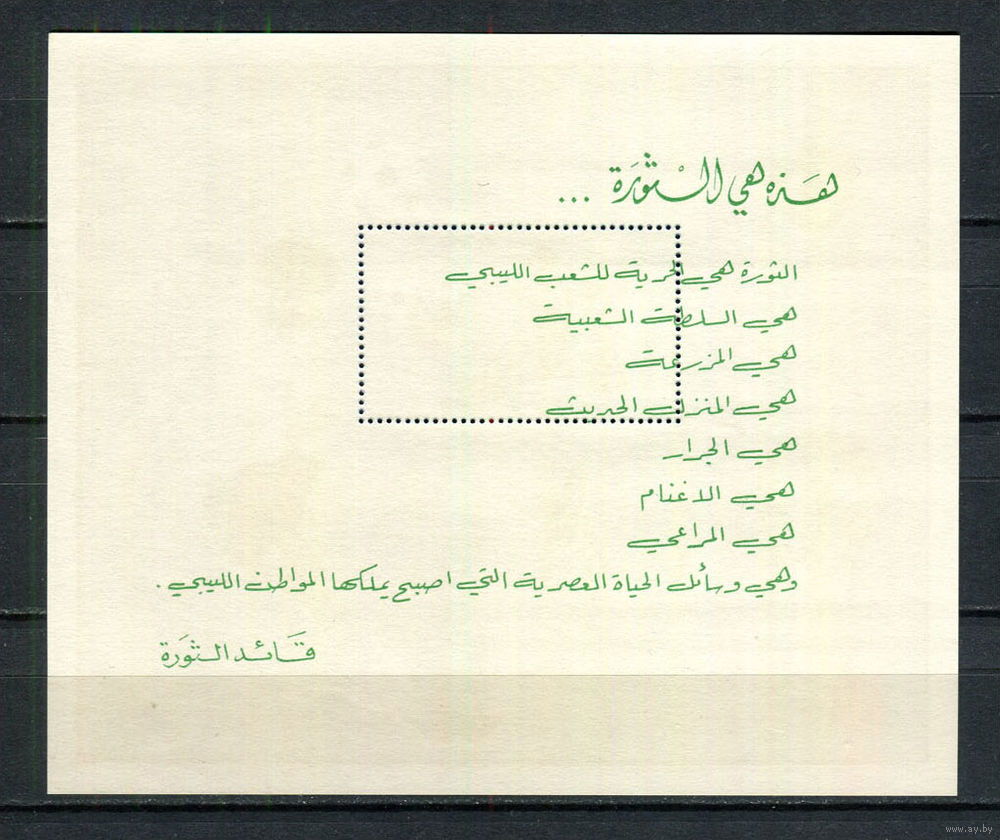 هذه هي الثورة ...
الثورة هي الحرية للشعب الليبي
هي السلطة الشعبية
هي المزرعة
هي المنزل الحديث
هي الجرار
هي الاغنام
هي المراعي
وهي وسائل الحياة العصرية التي اصبح يملكها المواطن الليبي .
قائد الثورة
www.ay.by